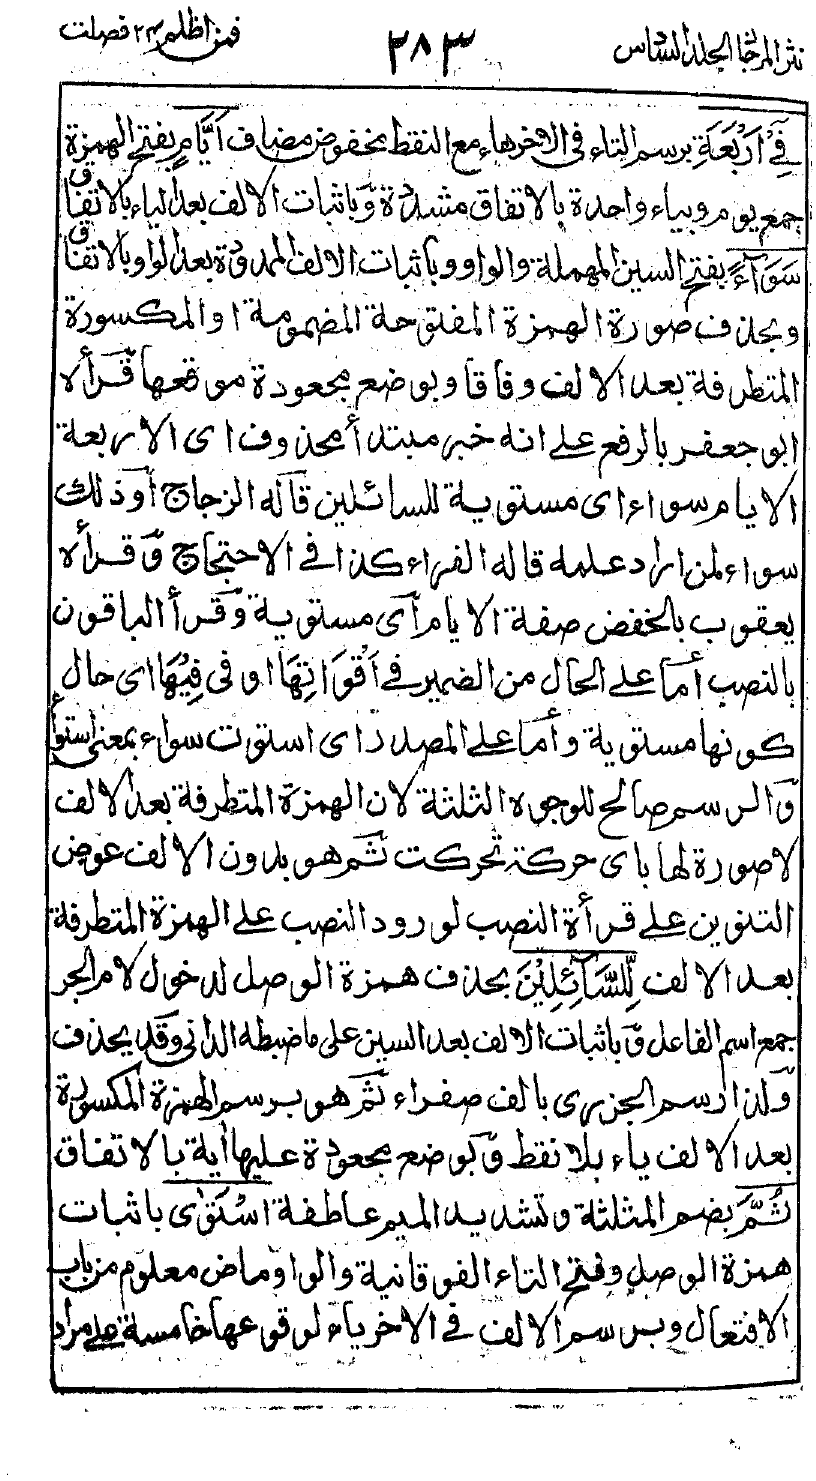 نثر المرجان الجلد السادس ٢٨٣ فمن اظلم ٢٤ فصلت
فِىْٓ اَرْبَعَةِ برسم التاء فى الاخرهاء مع النقط مخفوض مضاف اَيَّامٍ بفتح الهمزة
جمع يوم وبياء واحدة بالاتفاق مشددة وباثبات الالف بعد الياء بالاتفاق
سَوَآءً بفتح السين المهملة والواو وباثبات الالف الممدودة بعد الواو بالاتفاق
وبحذف صورة الهمزة المفتوحة المضمومة او المكسورة
المتطرفة بعد الالف وفاقا وبوضع مجعودة موقعها قرأه
ابو جعفر بالرفع على انه خبر مبتدأ محذوف اى الاربعة
الايام سواء اى مستوية للسائلين قاله الزجاج أو ذلك
سواء لمن اراد علمه قاله الفراء كذا فى الاحتجاج وقرأه
يعقوب بالخفض صفة الايام أى مستوية وقرأ الباقون
بالنصب أما على الحال من الضمير فى اَقْوَاتِهَا او فى فِيْهَا اى حال
كونها مستوية وأما على المصدر اى استوت سواء بمعنى استواء
والرسم صالح للوجوه الثلثة لان الهمزة المتطرفة بعد الالف
لا صورة لها باى حركة تحركت ثم هو بدون الالف عوض
التنوين على قرأة النصب لورود النصب على الهمزة المتطرفة
بعد الالف لِّلسَّآئِلِيْنَ بحذف همزة الوصل لدخول لام الجر
جمع اسم الفاعل وباثبات الالف بعد السين على ما ضبطه الدانى وقد يحذف
ولذا رسم الجزرى بالف صفراء ثم هو برسم الهمزة المكسورة
بعد الالف ياء بلا نقط وبوضع مجعودة عليها أية بالاتفاق
ثُمَّ بضم المثلثة وتشديد الميم عاطفة اسْتَوٰى باثبات
همزة الوصل وفتح التاء الفوقانية والواو ماض معلوم من باب
الافتعال وبرسم الالف فى الاخر ياء لوقوعها خامسة على مراد